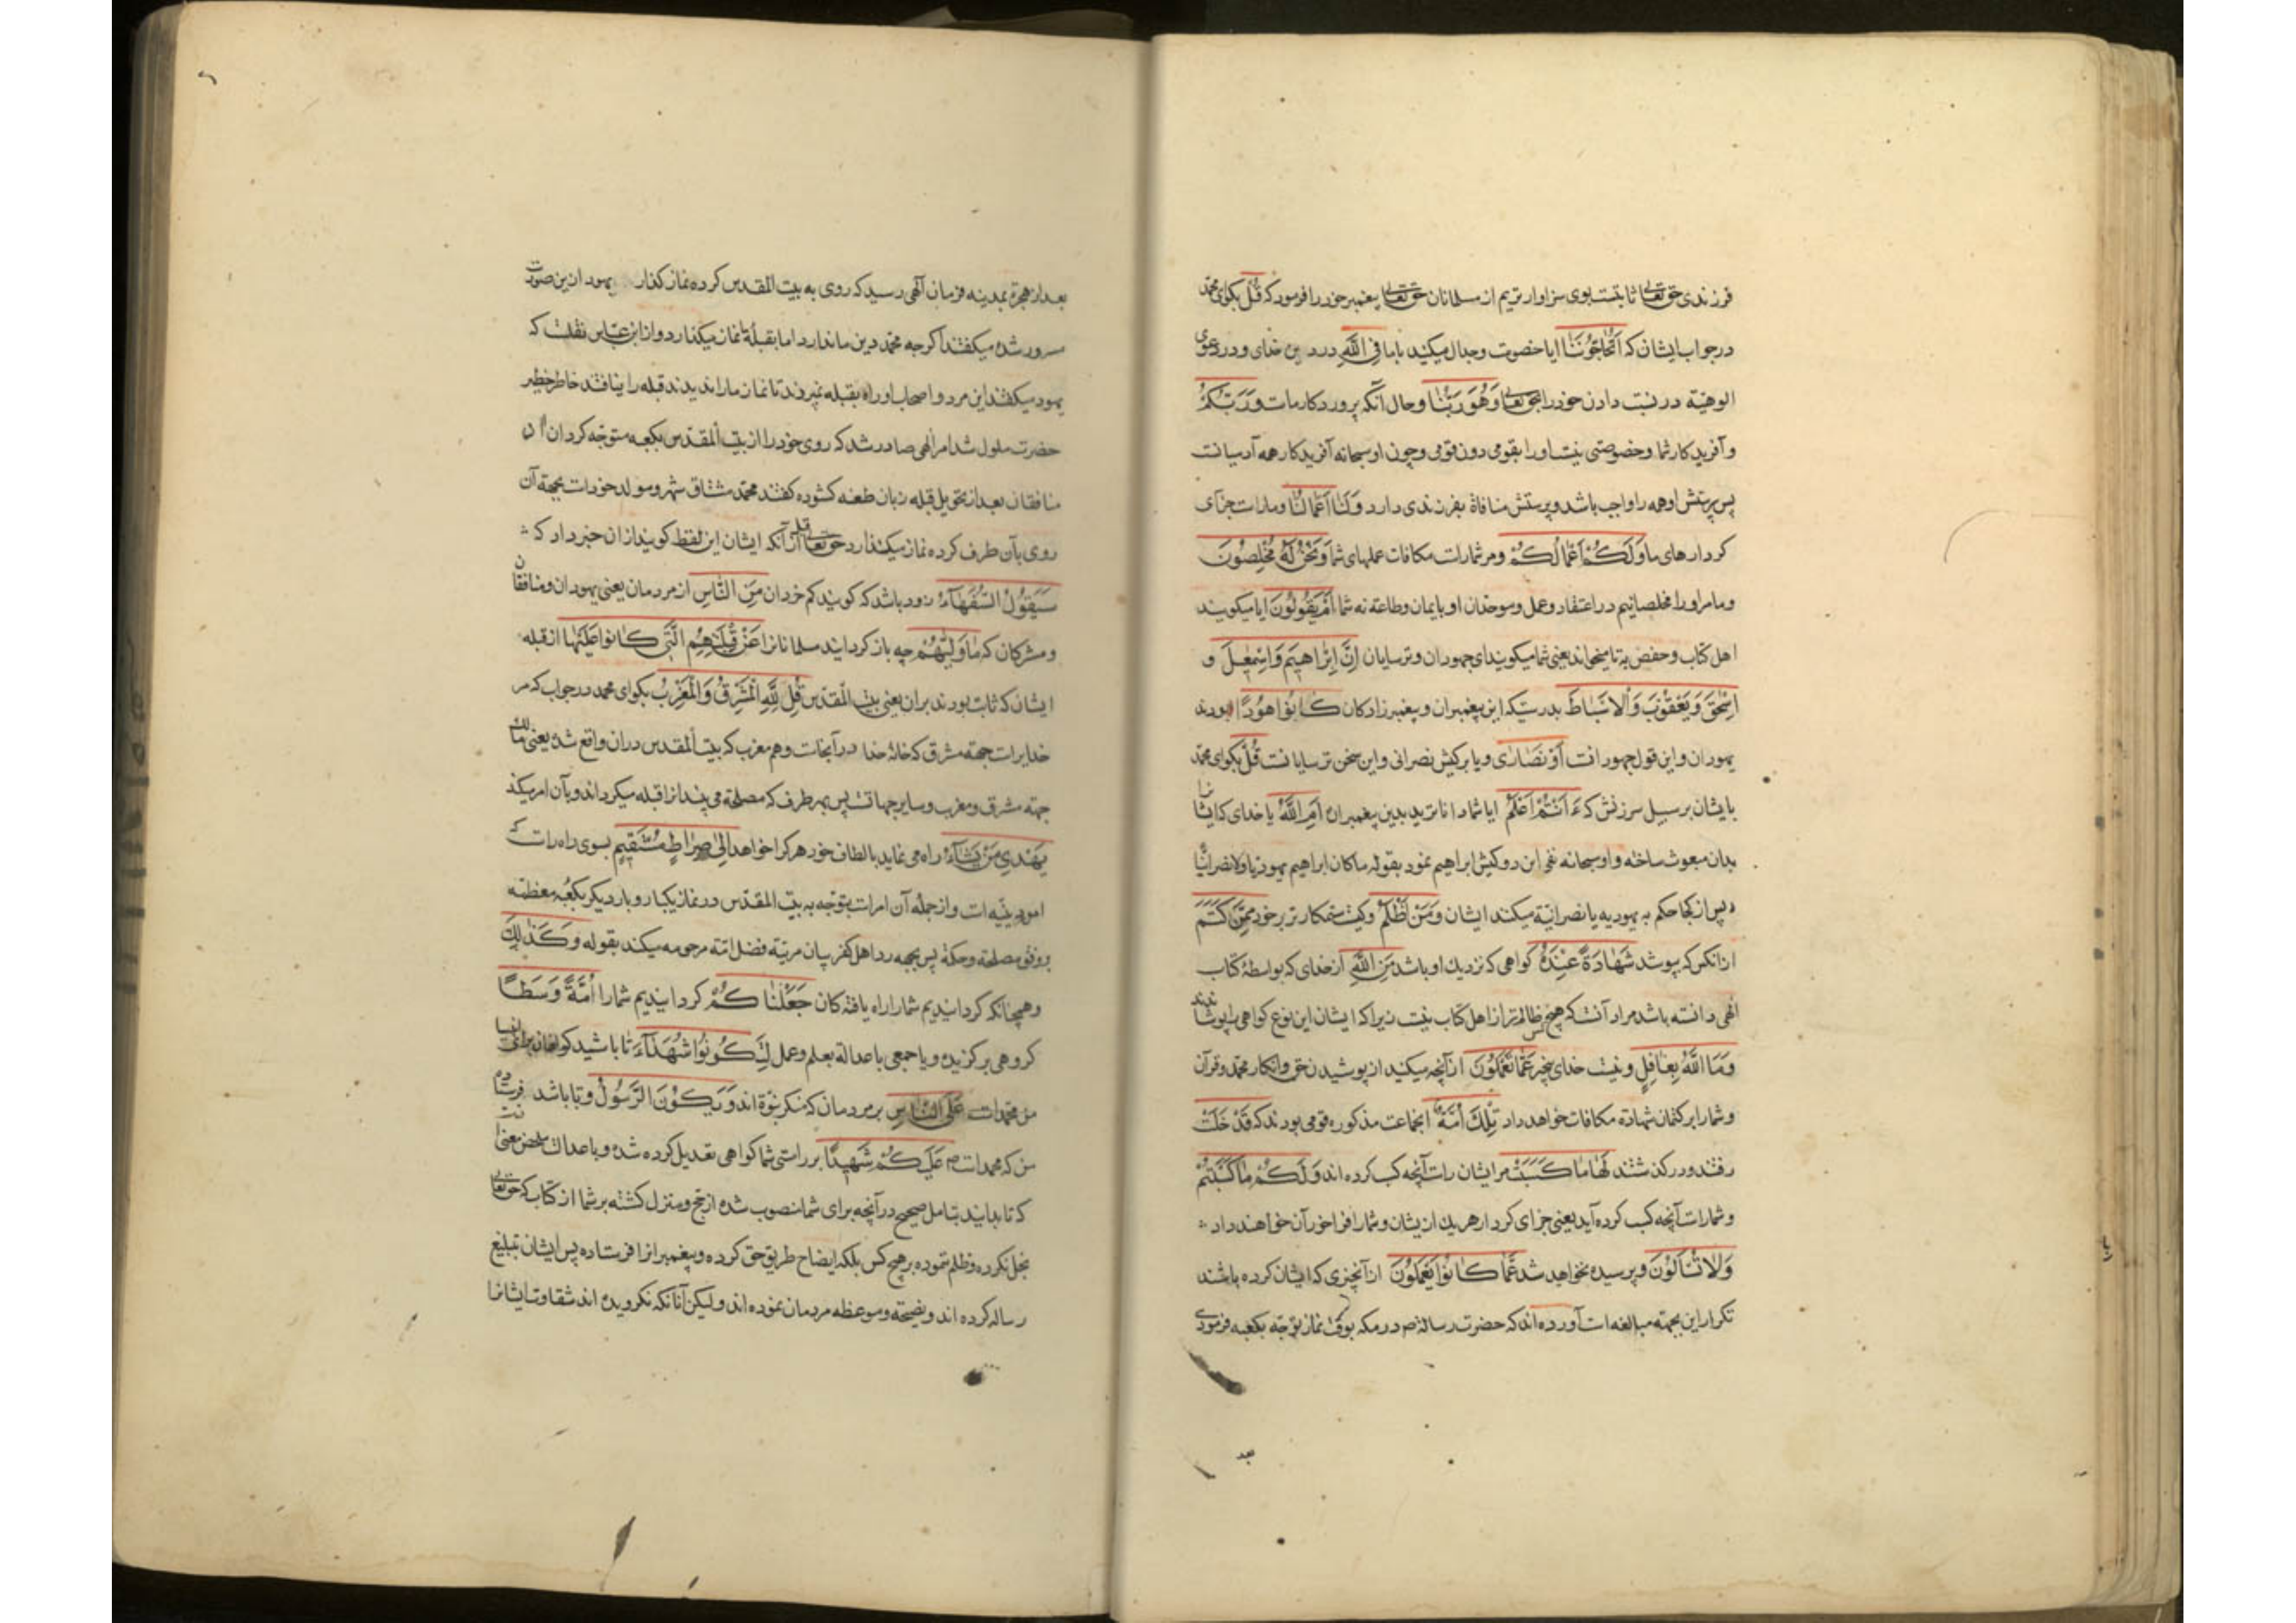 فرزندی حق تعالی ثابتست بوی سزاوارتریم از مسلمانان حق تعالی پیغمبر خود را فرمود که قُلْ بکوای محمّد
در جواب ایشان که اَتُحَاجُّونَنَا ایا خصومت وجدال میکنید باما فِی اللّٰهِ در دین خدای و در دعوی
الوهیّة در نسبت دادن خود را بحق تعالی وَهُوَ رَبُّنَا وحال آنکه پروردکار ماست وَرَبُّکُمْ
وآفریدکار شما وخصوصیتی نیست اورا بقومی دون قومی وچون اوسبحانه آفریدکار همه آدمیانست
پس پرستش او همه را واجب باشد وپرستش منافاة بفرزندی دارد وَلَنَا اَعْمَالُنَا ومار است جزای
کردارهای ما وَلَکُمْ اَعْمَالُکُمْ ومر شمار است مکافات عملهای شما وَنَحْنُ لَهُ مُخْلِصُونَ
وما مر اورا مخلصانیم در اعتقاد وعمل وموحدان او بایمان وطاعة نه شما اَمْ یَقُولُونَ ایا میکویند
اهل کتاب وحفص به تا میخواند یعنی شما میکویید ای جهودان وترسایان اِنَّ اِبْرَاهِیمَ وَاِسْمٰعِیلَ و
اِسْحٰقَ وَیَعْقُوبَ وَالْاَسْبَاطَ بدرستیکه این پیغمبران وپیغمبرزادکان کَانُوا هُودًا بودند
یهودان واین قول جهودانست اَوْ نَصَارٰی ویا بر کیش نصرانی واین سخن ترسایانست قُلْ بکوای محمّد
با یشان بر سبیل سرزنش که ءَاَنْتُمْ اَعْلَمُ ایا شما داناترید بدین پیغمبران اَمِ اللّٰهُ یا خدای که ایشانرا
بدان مبعوث ساخته واوسبحانه نفی این دو کیش ابراهیم نمود بقوله ماکان ابراهیم یهودیا ولانصرانیّا
پس از کجا حکم به یهودیه یا نصرانیّة میکنند ایشان وَمَنْ اَظْلَمُ وکیست ستمکارتر بر خود مِمَّنْ کَتَمَ
ازانکس که بپوشد شَهَادَةً عِنْدَهُ کواهی که نزدیك او باشد مِنَ اللّٰهِ از خدای که بواسطۀ کتاب
الٰهی دانسته باشد مراد آنست که هیچ کس ظالم تر از اهل کتاب نیست زیرا که ایشان این نوع کواهی را پوشانیدند
وَمَا اللّٰهُ بِغَافِلٍ ونیست خدای بیخبر عَمَّا تَعْمَلُونَ از آنچه میکنید از پوشیدن حق وانکار محمّد وقرآن
وشمارا بر کتمان شهادة مکافات خواهد داد تِلْكَ اُمَّةٌ انجماعت مذکوره قومی بودند که قَدْ خَلَتْ
رفتند ودر کذشتند لَهَا مَا کَسَبَتْ مر ایشان راست آنچه کسب کرده اند وَلَکُمْ مَا کَسَبْتُمْ
وشمار است آنچه کسب کرده آید یعنی جزای کردار هر یك از یشان وشمارا فراخور آن خواهند داد
وَلَا تُسْئَلُونَ وپرسیده نخواهید شد عَمَّا کَانُوا یَعْمَلُونَ از آنچیزی که ایشان کرده باشند
تکرار این بجهته مبالغه است آورده اند که حضرت رسالة ص در مکه بوقت نماز توجه بکعبه فرمودی
بعد
بعد از هجرة بمدینه فرمان الٓهی رسید که روی به بیت المقدس کرده نماز کذار یهود ازین صورت
مسرور شده میکفتند اکرچه محمّد دین ما ندارد اما بقبلۀ ما نماز میکذارد واز ابن عبّاس نقلست که
یهود میکفتند این مرد واصحاب او راه بقبله نمیبردند تا نماز مارا ندیدند قبله را نیافتند خاطر خطیر
حضرت ملول شد امر الٰهی صادر شد که روی خود را از بیت المقدّس بکعبه متوجّه کردان
منافقان بعد از تحویل قبله زبان طعنه کشوده کفتند محمّد مشتاق شهر ومولد خود است بجهة آن
روی بآن طرف کرده نماز میکذارد حق تعالی قبل از آنکه ایشان این لفظ کویند از ان خبر داد که
سَیَقُولُ السُّفَهَآءُ زود باشد که کویند کم خردان مِنَ النَّاسِ از مردمان یعنی یهودان ومنافقان
ومشرکان که مَا وَلّٰیهُمْ چه باز کردانید مسلمانانرا عَنْ قِبْلَتِهِمُ الَّتِی کَانُوا عَلَیْهَا از قبله
ایشان که ثابت بودند بران یعنی بیت المقدّس قُلْ لِلّٰهِ الْمَشْرِقُ وَالْمَغْرِبُ بکوای محمد در جواب که مر
خدایراست جهته مشرق که خانۀ خدا در آنجاست وهم مغرب که بیت المقدس دران واقع شده یعنی مالك
جهة مشرق ومغرب وسایر جهاتست پس بهر طرف که مصلحة می بیند انرا قبله میکرداند وبآن امر میکند
یَهْدِی مَنْ یَشَآءُ راه می نماید بالطاف خود هر کرا خواهد اِلٰی صِرَاطٍ مُسْتَقِیمٍ بسوی راه راست که
امور دینیّه است واز جمله آن امر است بتوجّه به بیت المقدّس در نماز یکبار وبار دیکر بکعبه معظمه
بر وفق مصلحة وحکمة پس بجهه رد اهل کفر بیان مرتبۀ فضل امّة مرحومه میکند بقوله وَکَذٰلِكَ
وهمچنانکه کردانیدیم شمارا راه یافتکان جَعَلْنَا کُمْ کردانیدیم شمارا اُمَّةً وَسَطًا
کروهی برکزیده ویا جمعی با عدالة بعلم وعمل لِتَکُونُوا شُهَدَآءَ تا باشید کواهان برای انبیا
عَلَی النَّاسِ بر مردمان که منکر نبوّة اند وَیَکُونَ الرَّسُولُ وتا باشد فرستاده
من که محمد است ص عَلَیْکُمْ شَهِیدًا بر راستی شما کواهی تعدیل کرده شده وبا عدالت
که تا بدانید بتامل صحیح در آنچه برای شما منصوب شده از حجج ومنزل کشته بر شما از کتاب که حق تعالی
بخل نکرده وظلم ننموده بر هیچ کس بلکه ایضاح طریق حق کرده وپیغمبرانرا فرستاده پس ایشان تبلیغ
رساله کرده اند ونصیحته وموعظه مردمان نموده اند ولیکن آنانکه نکرویده اند شقاوت ایشانرا